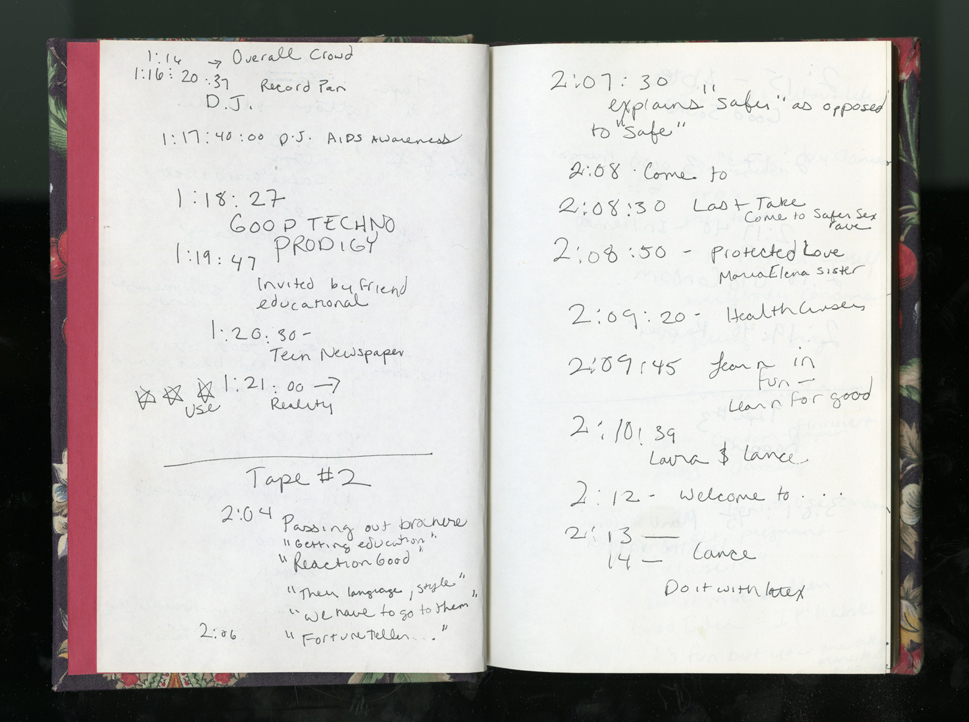 1:16 → Overall Crowd
1:16:20:37 Record Pan
D.J.
1:17:40:00 D.J. AIDS Awareness
1:18:27
GOOD TECHNO
PRODIGY
1:19:47
Invited by friend
educational
1:20:30-
Teen Newspaper
1:21:00 →
USE Reality
Tape #2
2:04 Passing out brochure
"Getting education"
"Reaction Good"
"Their language, style"
"We have to go to them"
2:06 "Fortune Teller..."
2:07:30
explains "safer" as opposed
to "safe"
2:08 Come to
2:08:30 Last Take
Come to Safer Sex
rave
2:08:50 - Protected Love
Maria Elena sister
2:09:20 - Health
2:09:45 learn in
fun —
learn for good
2:10:39
Laura & Lance
2:12 - Welcome to . . .
2:13 —
14 — Lance
Do it with latex